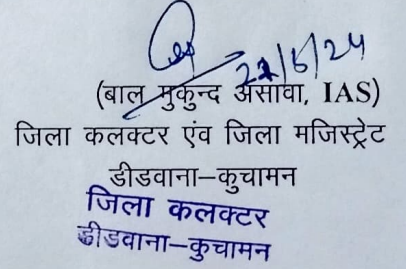 22/5/24
(बाल मुकुन्द असावा, IAS)
जिला कलक्टर एंव जिला मजिस्ट्रेट
डीडवाना–कुचामन
जिला कलक्टर
डीडवाना–कुचामन